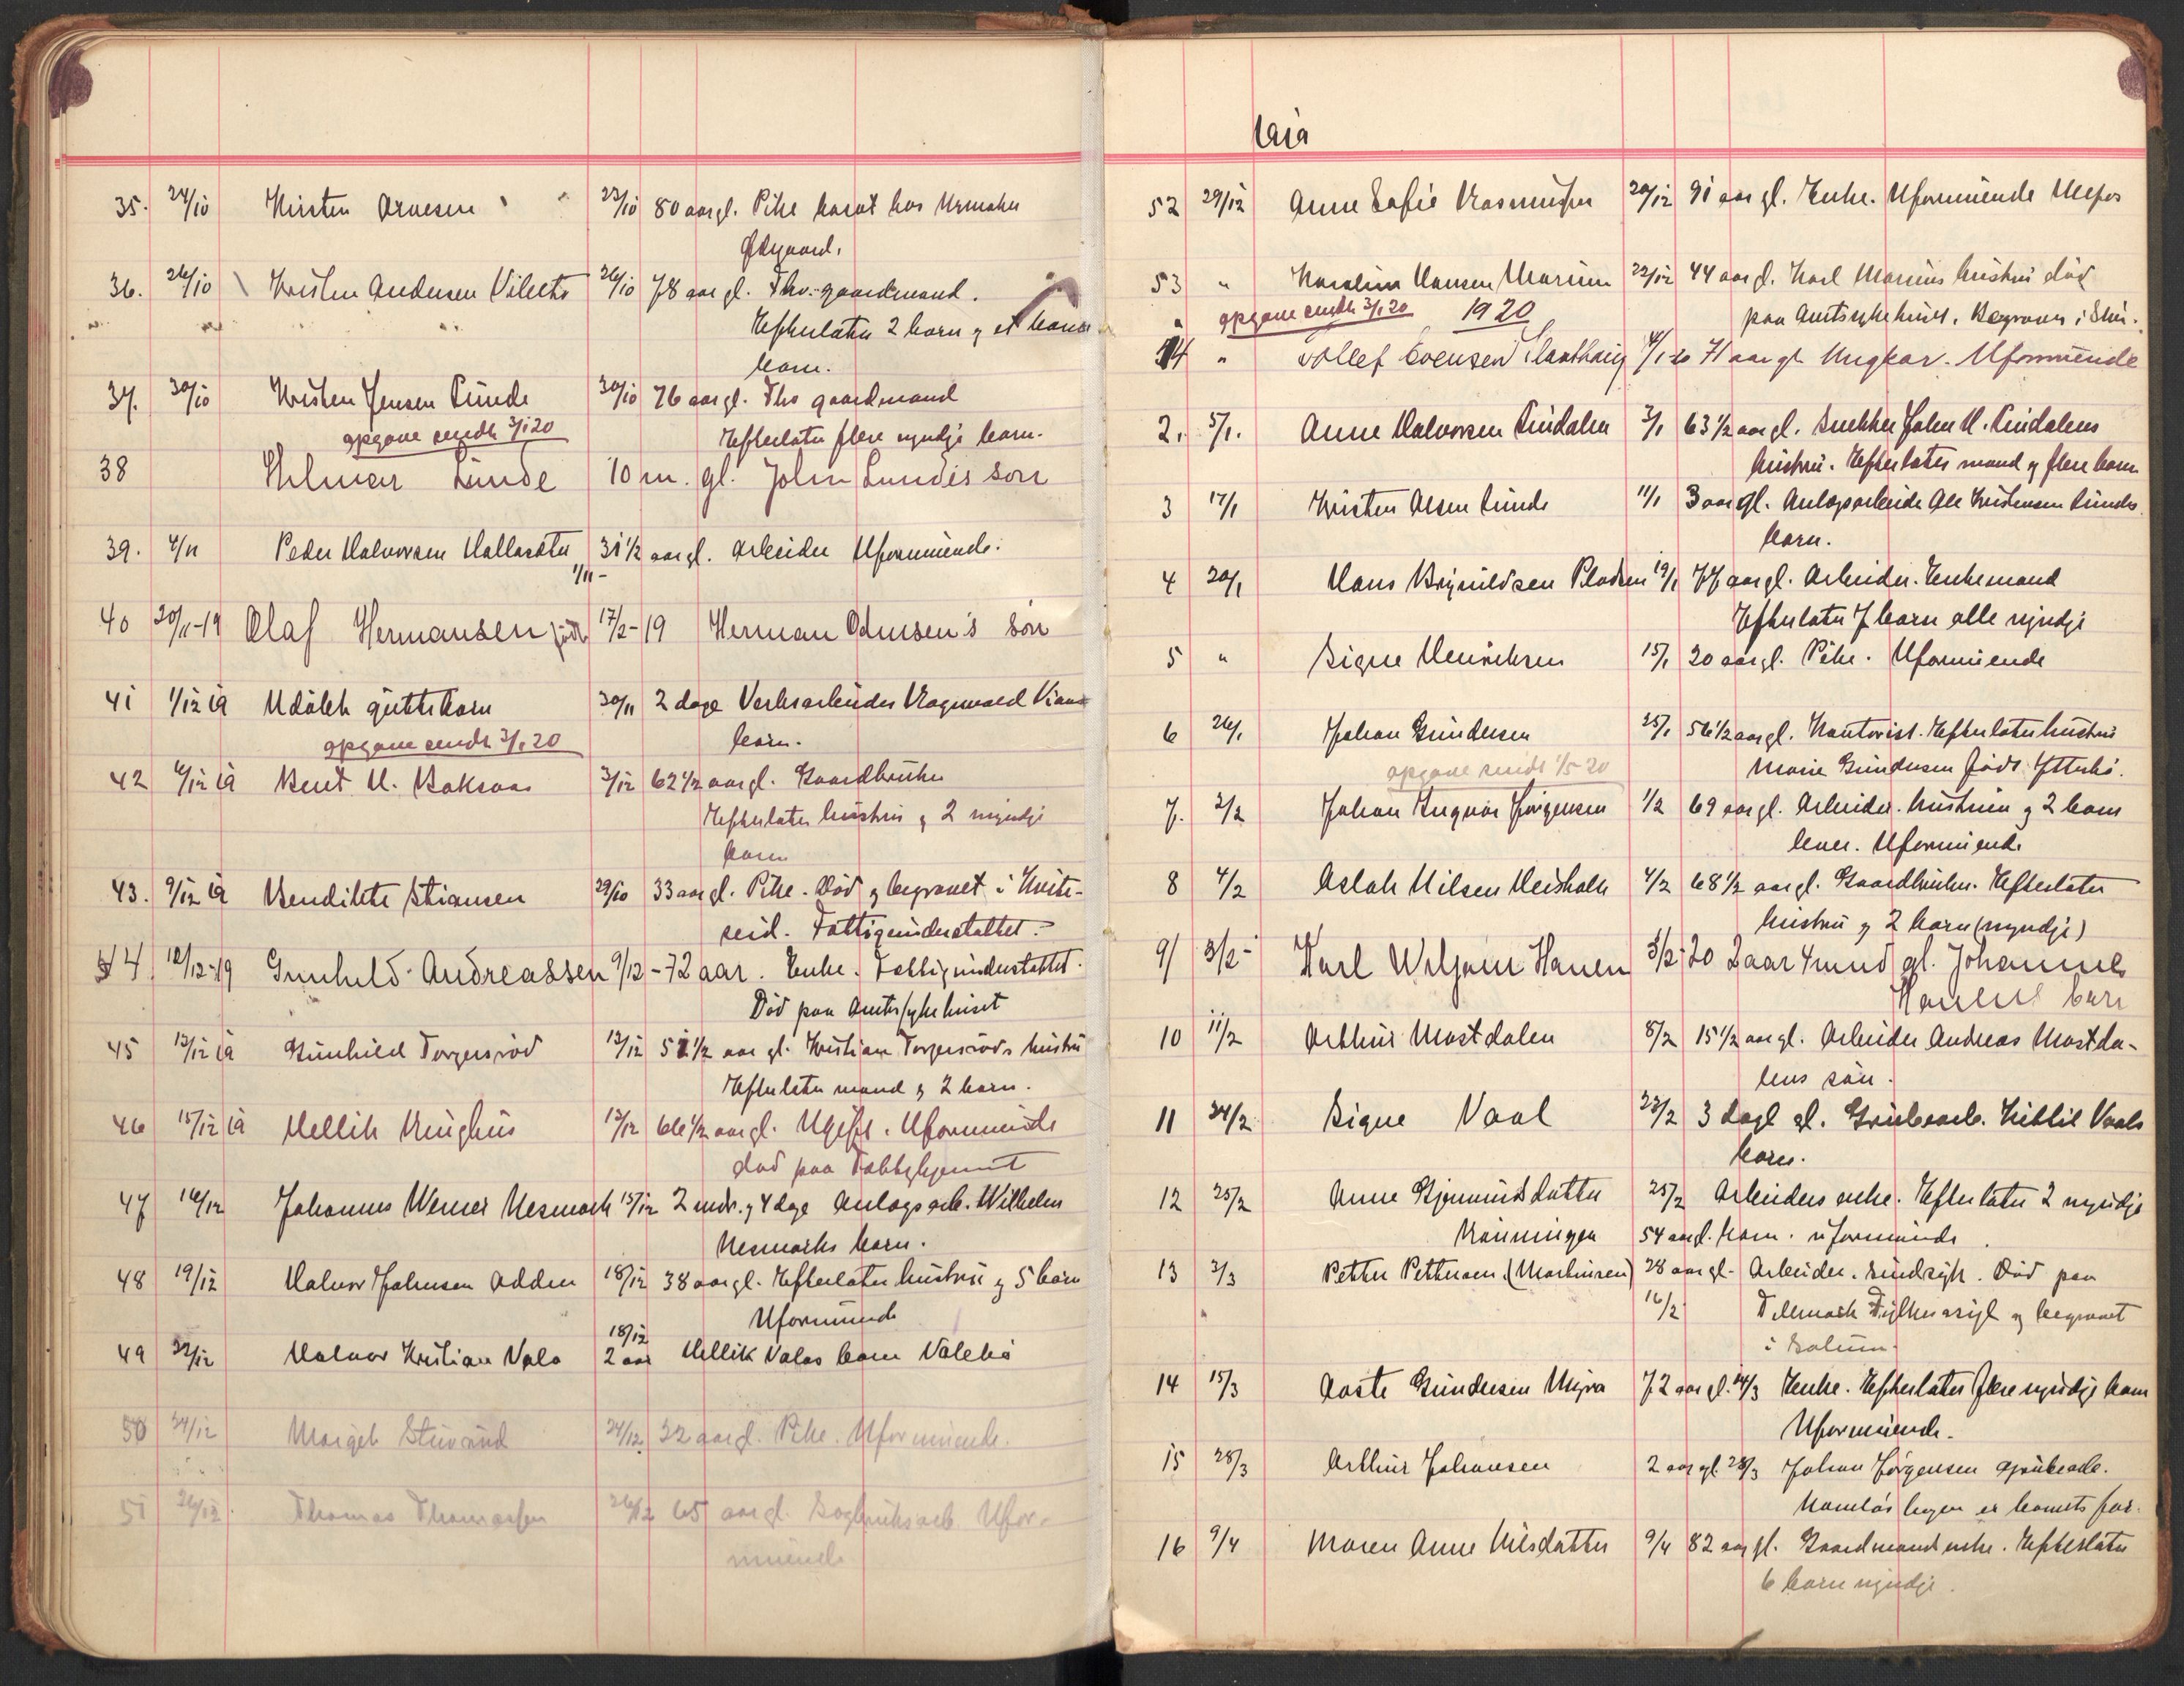 35. 24/10 Kirsten Arnesen 23/10 80 aar gl. Pike havat hos Urmaker
Ødegaard.
36. 26/10 Kristen Andersen Vibeto 26/10 78 aar gl. Fhv. gaardmand.
Efterlater 2 barn og et barne
barn.
37. 30/10 Kristen Jensen Lunde 30/10 76 aar gl. Fhv gaardmand
opgave sendt 3/1 20 Efterlater flere myndje barn.
38 Helmer Lunde 10 m. gl. John Lundes sön
39. 4/11 Peder Halvorsen Hallasäter 31 1/2 aar gl. Arbeider Uformuende.
1/11-
40 20/11-19 Olaf Hermansen född 17/2-19 Herman Odmsen's sön
41 1/12 19 Udöbt guttebarn 30/11 2 dage Verksarbeider Ragnvald
opgave sendt 3/1 20 barn.
42 6/12 19 Bent H. Baksaas 3/12 62 1/2 aar gl. Gaardbruker
Efterlater hustru og 2 myndje
barn
43. 9/12 19 Bendikte Stiansen 29/10 33 aar gl. Pike. Död og begravet i Kvite-
seid. Fattigunderstöttet.
44. 12/12-19 Gunhild Andreassen 9/12-72 aar. Enke. Fattigunderstöttet.
Död paa Amtssykehuset
45 13/12 19 Gunhild Torgersröd 12/12 51 1/2 aar gl. Kristian Torgersröds hustru
Efterlater mand og 2 barn.
46 15/12 19 Kellik Ringhus 12/12 66 1/2 aar gl. Ugift. Uformuende
död paa Fattighjemmet
47 16/12 Johannes Werner Nesmark 15/12 2 mdr. og 4 dage Anlagsarb. Wilhelm
Nesmarks barn.
48 19/12 Halvor Johnsen Odden 18/12 38 aar gl. Efterlater hustru og 5 barn
Uformuende
18/12
49 22/12 Halvor Kristian Vala 2 aar Kellik Valas barn Valebö
50 24/12 Margit Stuvrud 24/12 32 aar gl. Pike. Uformuende.
51 26/12. Thomas Thomassen 26/12 65 aar gl. Sagbruksarb. Ufor-
muende
1919
52 29/12 Anne Sofie Rasmussen 20/12 91 aar gl. Enke. Uformuende Ulefos
53 " Karoline Hansen Marum 22/12 44 aar gl. Karl Marums hustru död
opgave sendt 3/1 20 1920 paa Amtssykehuset. Begraves i Skien.
1 " Tollef Evensen 4/1 20 71 aar gl Ungkar. Uformuende
2. 5/1. Anne Halvorsen Lindalen 3/1 63 1/2 aar gl. Snekker John H. Lindalens
hustru. Efterlater mand og flere barn
3 17/1 Kristen Olsen Lunde 11/1 3 aar gl. Anlægsarbeider Ole Kristensen Lundes
barn.
4 20/1 Hans Brynildsen Pladsen 19/1 77 aar gl. Arbeider. Enkemand
Efterlater 7 barn alle myndje
5 " Signe Henriksen 15/1 20 aar gl. Pike. Uformuende
6 26/1 Johan Gundersen 25/1 56 1/2 aar gl. Kontorist. Efterlater hustru
opgave sendt 1/5 20 Marie Gundersen född Ytterbö.
7. 2/2 Johan Ingvar Jörgensen 1/2 69 aar gl. Arbeider. hustruen og 2 barn
lever. Uformuende
8 4/2 Aslak Nilsen Heisholt 4/2 68 1/2 aar gl. Gaardbruker. Efterlater
hustru og 2 barn (myndje)
9/ 3/2- Karl Weljam Hanen 3/2-20 2 aar 4 mnd gl. Johannes
Hanens barn
10 11/2 Arthur Mostdalen 8/2 15 1/2 aar gl. Arbeider Andreas Mostda-
lens sön.
11 24/2 Signe Vaal 23/2 3 dage gl. Grubearb. Kittil Vaals
barn.
12 25/2 Anne Gjermundsdatter 25/2 Arbeiders enke. Efterlater 2 myndje
Rönningen 54 aar gl. barn. uformuende.
13 3/3 Petter Pettersen (Martinsen) 28 aar gl- Arbeider. sindssyk. Död paa
16/2 Telemark Fylkesasyl og begravet
i Solum.
14 15/3 Aaste Gundersen Myra 72 aar gl. 14/3 Enke. Efterlater flere myndje barn
Uformuende.
15 28/3 Arthur Johansen 2 aar gl. 28/3 Johan Jörgensen grubearb.
Namlös hagen er barnets far.
16 9/4 Maren Anne Nilsdatter 9/4 82 aar gl. Gaardmandsenke. Efterlater
6 barn myndje.